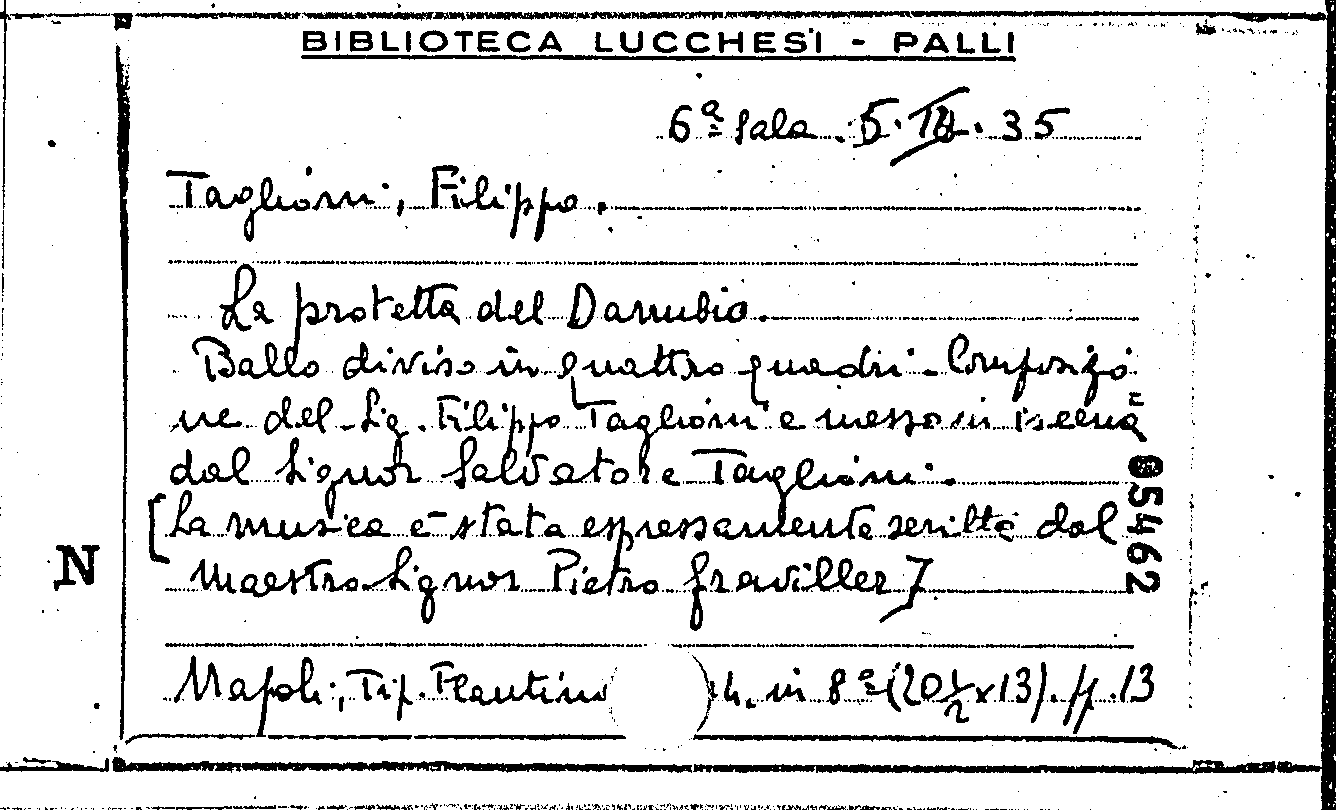 BIBLIOTECA LUCCHESI - PALLI
6ª Sala. 5. 35
Taglioni, Filippo.
La protetta del Danubio.
Ballo diviso in quattro quadri - Composizio=
ne del Sig. Filippo Taglioni e messo in iscena
dal Signor Salvatore Taglioni.
[La musica è stata espressamente scritta dal
Maestro Signor Pietro Graviller]
Napoli, Tip. Flautina 4. in 8ª (20 1/2 x 13). pp. 13
N
05462